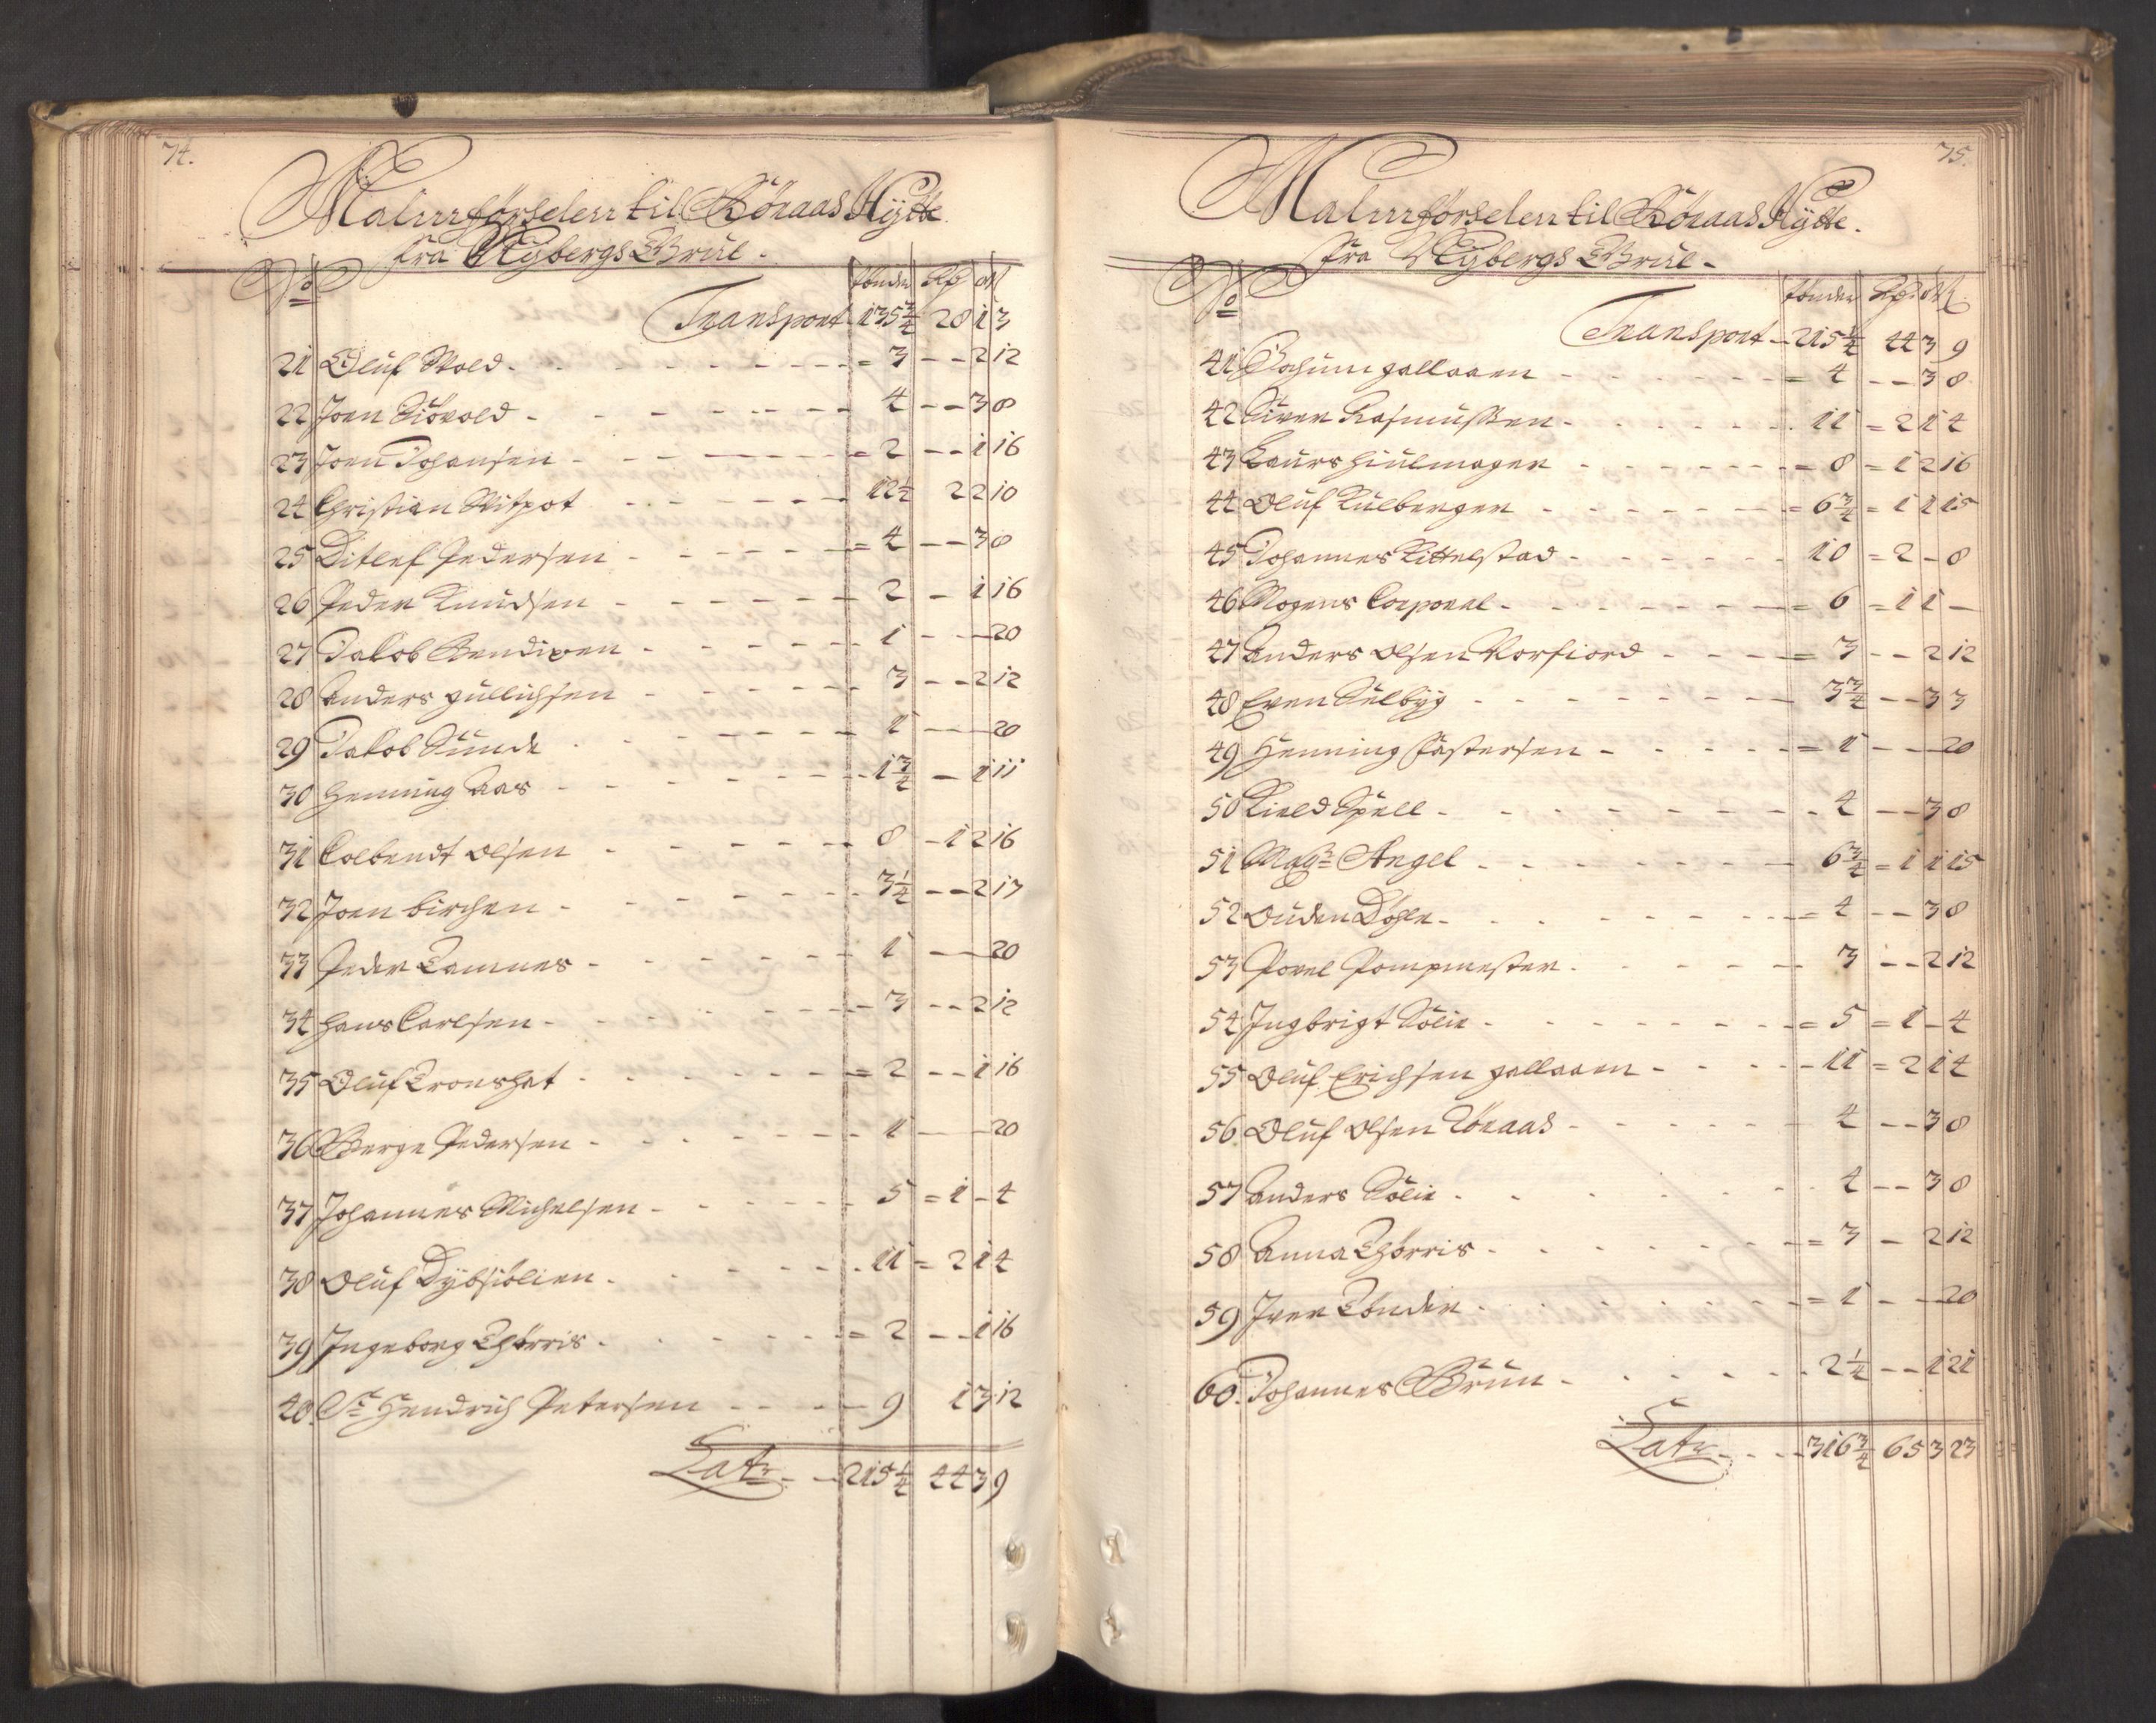 74.
Malmförselen til Röraas Hÿtte
fra Nÿbergs Grue.
No Tönder Rdr M
Transport 135 3/4 28 1 3
21 Oluf Wold - 3 - - 2 12
22 Joen Siövold - 4 - - 3 8
23 Joen Johansen - 2 - - 1 16
24 Christian Witpot 12 1/2 2 2 10
25 Ditlef Pedersen = 4 - - 3 8
26 Peder Knudsen - 2 - 1 16
27 Jakob Bendixen - 1 - - 20
28 Anders gullichsen - 3 - - 2 12
29 Jakob Sunde - 1 - - 20
30 Henning Aas - 1 3/4 - 1 11
31 Colbendt Olsen - 8 - 1 2 16
32 Joen birchen - 3 1/4 - - 2 17
33 Peder Tamnes - 1 - - 20
34 Hans Carlsen - 3 - - 2 12
35 Oluf Tronshat = 2 - - 1 16
36 Børge Pedersen - 1 - - 20
37 Johannes Michelsen - 5 = 1 - 4
38 Oluf Dÿbsiölien - 11 = 2 1 4
39 Ingeborg Thørris = 2 - - 1 16
40. Sr Hendrich Petersen - 9 1 3 12
Latr - 215 1/4 44 3 9
75.
Malmförselen til Röraas Hÿtte.
fra Nÿbergs Grue -
No Tönder Rdr M
Transport - 215 1/4 44 3 9
41 Jochum gallaaen = 4 - - 3 8
42 Siver Rasmussen - 11 = 2 1 4
43 Laurs Hiulmager = 8 = 1 2 16
44 Oluf Kulberger = 6 3/4 = 1 1 15
45 Johannes Kittelstad - 10 = 2 - 8
46 Mogens Corporal = 6 = 1 1 -
47 Anders Olsen Korsiord = 3 - - 2 12
48 Even Selbÿg - 3 3/4 - - 3 3
49 Henning Pastersen = 1 - - 20
50 Kield Spell - 4 - - 3 8
51 Magr Angel - 6 3/4 = 1 1 15
52 Ouden Döhle = 4 - - 3 8
53 Povel Pompmester - 3 - - 2 12
54 Ingbrigt Sölie = 5 = 1 - 4
55 Oluf Erichsen gallaaen - 11 = 2 1 4
56. Oluf Olsen Röraas - 4 - - 3 8
57 Anders Sölie - 4 - - 3 8
58 Anna Thørris = 3 - 2 12
59 Iver Tönder = 1 - - 20
60. Johannes Bruun - 2 1/4 - - 1 21
Latr - 316 3/4 65 3 23